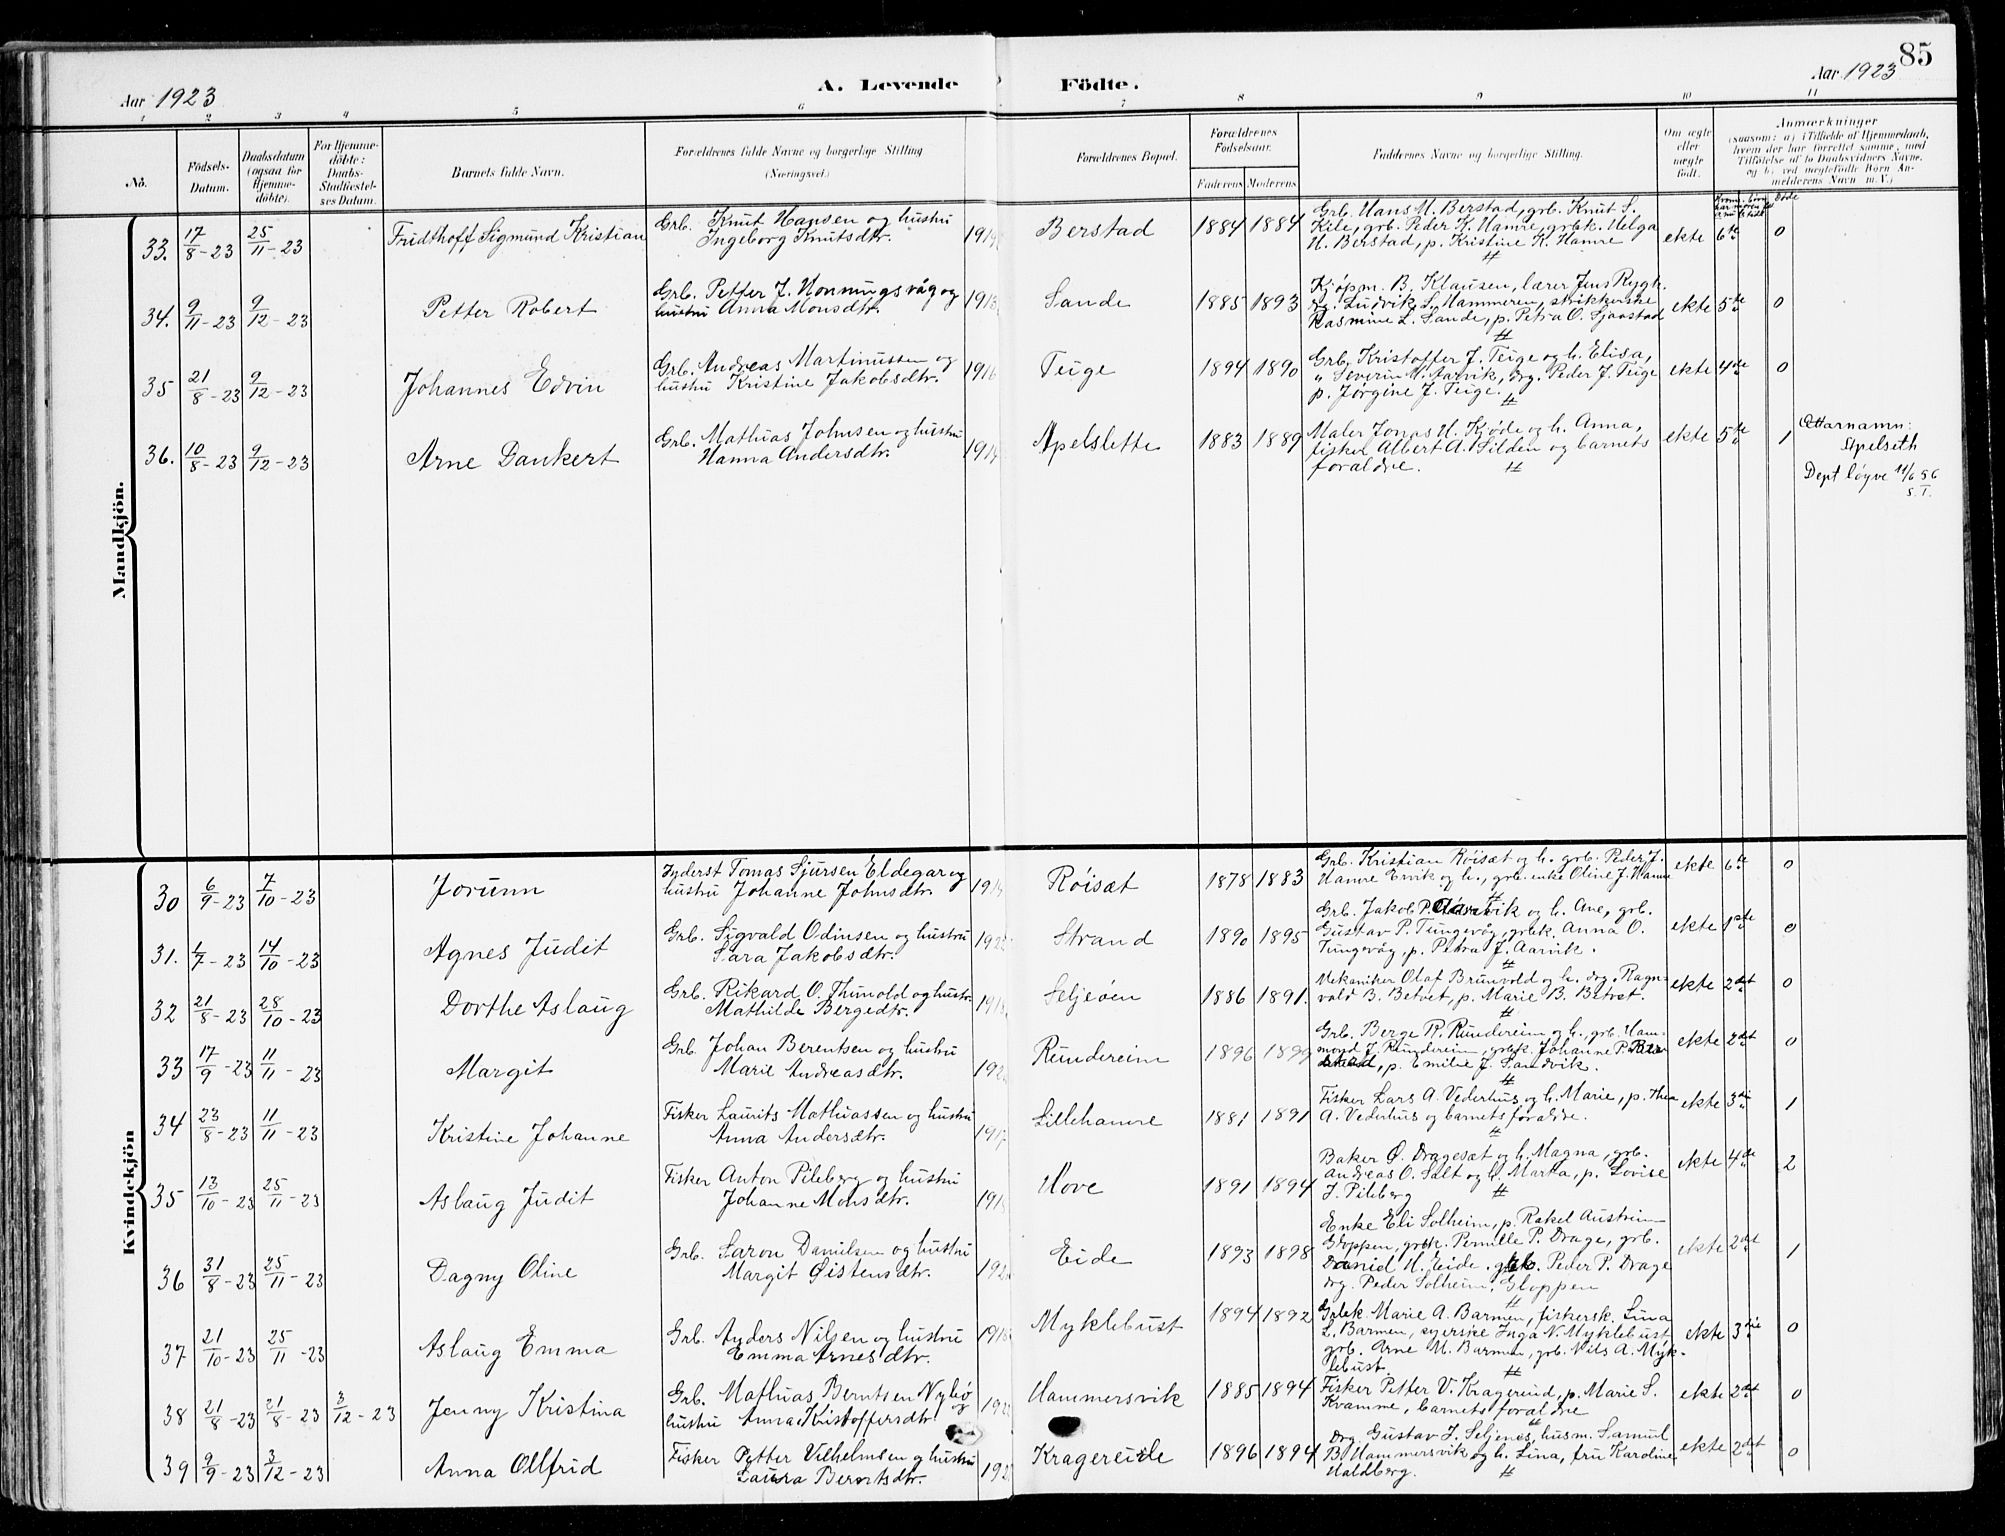 85
Aar 1923
A. Levende
Födte.
Aar 1923
1 2 3 4 5 6 7 8 9 10 11
No.
Födsels-Datum.
Daabsdatum (ogsaa for Hjemme-döbte).
For Hjemme-döbte: Daabs-Stadfæstel-ses Datum.
Barnets fulde Navn.
Forældrenes fulde Navne og borgerlige Stilling
(Næringsvei.)
Forældrenes Bopæl.
Forældrenes Födselsaar.
Faderens Moderens
Faddernes Navne og borgerlige Stilling.
Om ægte eller uægte födt.
Anmærkninger
(saasom: a) i Tilfælde af Hjemmedaab,
hvem der har forrettet samme, med
Tilföielse af to Daabsvidners Navne,
og b) ved uægtefödte Börn An-
melderens Navn m. V.)
Mandkjön.
33. 17/8-23 25/11-23 Fridthoff Sigmund Kristian Grb. Knut Hansen og hustru Berstad 1884 1884 Grb. Hans M. Berstad, grb. Knut S. ekte 6te 0
Ingeborg Knutsdtr. Kile, grb. Peder K. Hamre, grbk. Helga
H. Berstad, p. Kristine K. Hamre
34. 9/11-23 9/12-23 Petter Robert Grb. Petter J. Honningsvåg og 1913 Sande 1885 1893 Kjøpm. B. Klausen, lærer Jens Rygh. ekte 5te 0
hustru Anna Monsdtr. drg. Ludvik S. Hammeren, strikkerske
Rasmine L. Sande, p. Petra O. Sjaastad
35 21/8-23 9/12-23 Johannes Edvin Grb. Andreas Martinussen og 1916 Teige 1894 1890 Grb. Kristoffer J. Teige og h. Elisa, ekte 4de 0
hustru Kristine Jakobsdtr. " Severin M. Aarvik, drg. Peder J. Teige
p. Jørgine J. Teige.
36. 10/8-23 9/12-23 Arne Dankert Grb. Mathias Johnsen og hustru Apelslette 1883 1889 Maler Jonas H. Kjøde og h. Anna, ekte 5te 1 Ettarnamn:
Hanna Andersdtr. fisker Albert A. Silden og barnets Apelseth
foraldre. Dept løyve 11/6 56
S.T.
Kvindekjön
30 6/9-23 7/10-23 Jorunn Inderst Tomas Sjursen Eldegar og Røisæt 1878 1883 Grb. Kristian Røisæt og h. grb. Peder J. ekte 6te 0
hustru Johanne Johnsdtr. Hamre Ervik og h., grb. enke Oline J. Hamre
31. 1/7-23 14/10-23 Agnes Judit Grb. Sigvald Odinsen og hustru Strand 1890 1895 Grb. Jakob P. Aarvik og h. Ane, grb. ekte 1ste 0
Sara Jakobsdtr. Gustav P. Tungevåg, grbk. Anna O.
Tungevåg, p. Petra J. Aarvik.
32 21/8-23 28/10-23 Dorthe Aslaug Grb. Rikard O. Thunold og hustr. Seljeøen 1886 1891. Mekaniker Olaf Brunvold og h. drg. Ragn- ekte 2det 0
Mathilde Bergedtr. vald B. Betvet, p. Marie B. Betvet.
33 17/9-23 11/11-23 Margit Grb. Johan Berentsen og hustru Rundereim 1896 1899 Grb. Berge R. Rundereim og h. grb. Ham- ekte 2det 0
Marie Andreasdtr. mond J. Rundereim, grbk. Johanne P. Ber
stad, p. Emilie J. Sandvik.
34 23/8-23 11/11-23 Kristine Johanne Fisker Laurits Mathiassen og hustru 1917 Lillehamre 1881 1891 Fisker Lars A. Vederhus og h. Marie, p. Thea ekte 3die 1
Anna Andersdtr. A. Vederhus og barnets foraldre.
35 13/10-23 25/11-23 Aslaug Judit Fisker Anton Pileberg og hustru Hove 1891 1894 Baker Ø. Dragesæt og h. Magna, grb. ekte 4de 2
Johanne Monsdtr. Andreas O. Salt og h. Marta, p. Lovise
J. Pileberg
36 31/8-23 25/11-23 Dagny Oline Grb. Saron Danielsen og hustru Eide 1893 1898 Enke Eli Solheim, p. Rakel Austrim ekte 2det 1
Margit Øistensdtr. Gloppen, grbk. Pernille P. Drage, grb.
Daniel H. Eide. grb. Peder P. Drage
drg. Peder Solheim, Gloppen
37 21/10-23 25/11-23 Aslaug Emma Grb. Anders Nilsen og hustru Myklebust 1894 1892 Grbk Marie A. Barmen, fiskersk. Lina ekte 3die 0
Emma Arnesdtr. L. Barmen, syerske Inga N. Myklebust
grb. Arne M. Barmen, grb. Nils A. Myk-
lebust.
38 21/8-23 21/8-23 3/12-23 Jenny Kristina Grb. Mathias Berntsen Nybø og Hammersvik 1885 1894 Fisker Petter V. Kragereid, p. Marie S. ekte 2det 0
hustru Anna Kristoffersdtr. Kvamme, barnets foraldre
39 9/9-23 3/12-23 Anna Ollfrid Fisker Petter Vilhelmsen og hustru Kragereide 1896 1894 Drg. Gustav J. Seljenes, husm. Samul ekte 2det 0
Laura Berntsdtr. B. Hammersvik og h. Lina, fru Karoline
Haldberg.